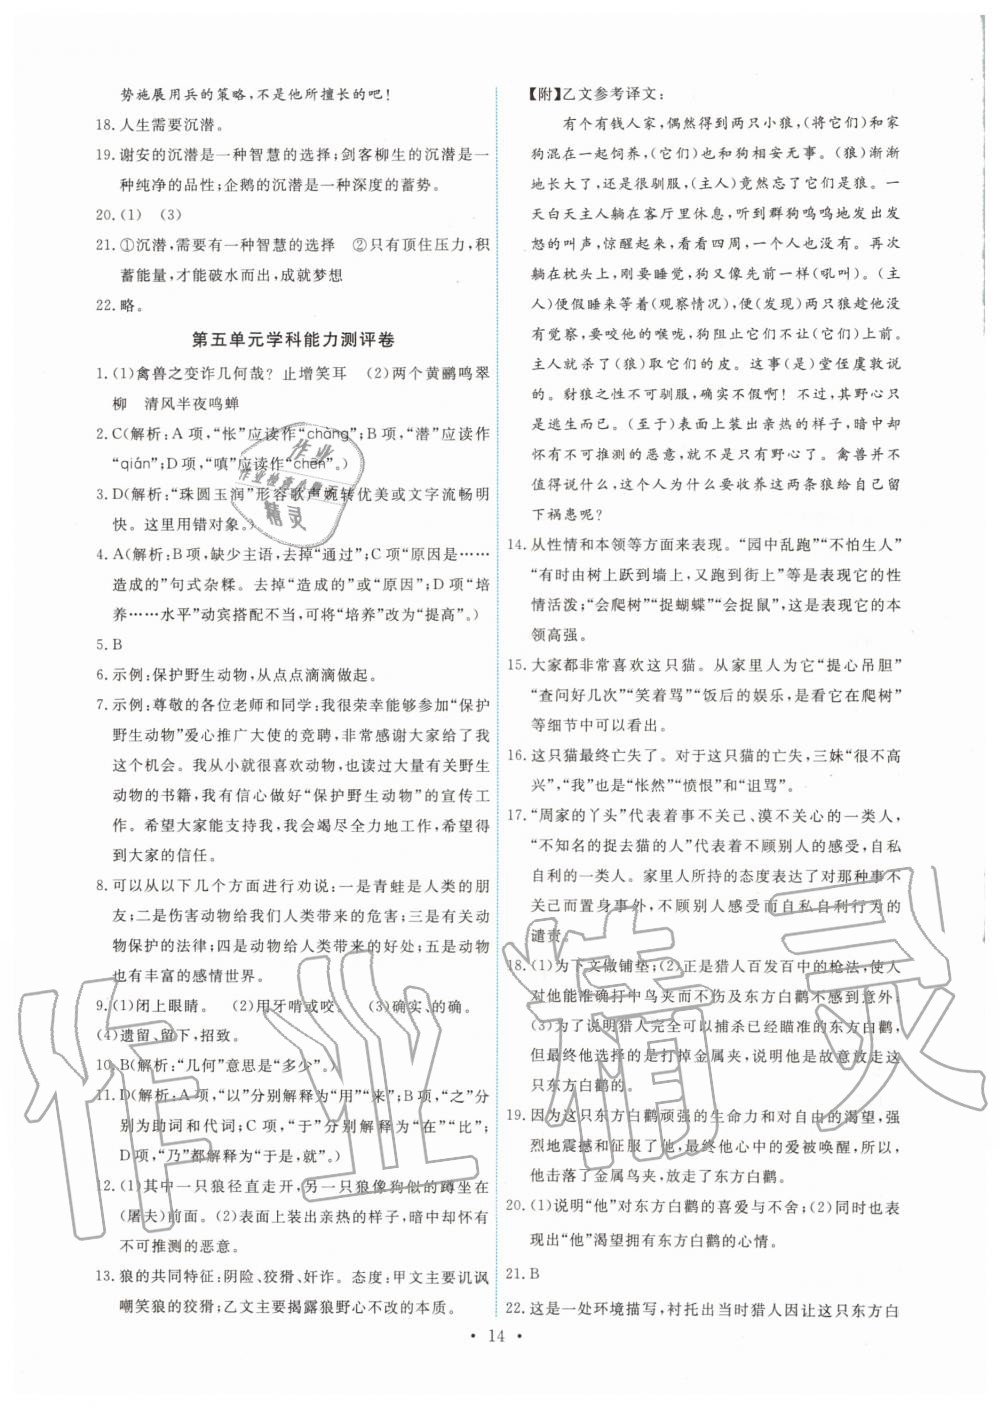 势施展用兵的策略,不是他所擅长的吧!
18.人生需要沉潜。
19.谢安的沉潜是一种智慧的选择;剑客柳生的沉潜是一
种纯净的品性;企鹅的沉潜是一种深度的蓄势。
20.(1) (3)
21.①沉潜,需要有一种智慧的选择 ②只有顶住压力,积
蓄能量,才能破水而出,成就梦想
22.略。
第五单元学科能力测评卷
1.(1)禽兽之变诈几何哉? 止增笑耳 (2)两个黄鹂鸣翠
柳 清风半夜鸣蝉
2.C(解析:A项,“怅”应读作“chàng”;B项,“潜”应读作
“qián”;D项,“嗔”应读作“chēn”。)
3.D(解析:“珠圆玉润”形容歌声婉转优美或文字流畅明
快。这里用错对象。)
4.A(解析:B项,缺少主语,去掉“通过”;C项“原因是……
造成的”句式杂糅。去掉“造成的”或“原因”;D项“培
养……水平”动宾搭配不当,可将“培养”改为“提高”。)
5.B
6.示例:保护野生动物,从点点滴滴做起。
7.示例:尊敬的各位老师和同学:我很荣幸能够参加“保护
野生动物”爱心推广大使的竞聘,非常感谢大家给了我
这个机会。我从小就很喜欢动物,也看过大量有关野生
动物的书籍,我有信心做好“保护野生动物”的宣传工
作。希望大家能支持我,我会竭尽全力地工作,希望得
到大家的信任。
8.可以从以下几个方面进行劝说:一是青蛙是人类的朋
友;二是伤害动物给我们人类带来的危害;三是有关动
物保护的法律;四是动物给人类带来的好处;五是动物
也有丰富的感情世界。
9.(1)闭上眼睛。 (2)用牙啃或咬。 (3)确实、的确。
(4)遗留、留下,招致。
10.B(解析:“几何”意思是“多少”。)
11.D(解析:A项,“以”分别解释为“用”“来”;B项,“之”分
别为助词和代词;C项,“于”分别解释为“在”“比”;
D项,“乃”都解释为“于是,就”。)
12.(1)其中一只狼径直走开,另一只狼像狗似的蹲坐在
(屠夫)前面。(2)表面上装出亲热的样子,暗中却怀有
不可推测的恶意。
13.狼的共同特征:阴险、狡猾、奸诈。态度:甲文主要讥讽
嘲笑狼的狡猾;乙文主要揭露狼野心不改的本质。
【附】乙文参考译文:
有个有钱人家,偶然得到两只小狼,(将它们)和家
狗混在一起饲养,(它们)也和狗相安无事。(狼)渐渐
地长大了,还是很驯服,(主人)竟然忘了它们是狼。一
天白天主人躺在客厅里休息,听到群狗呜呜地发出发
怒的叫声,惊醒起来,看看四周,一个人也没有。再次
躺在枕头上,刚要睡觉,狗又像先前一样(吼叫)。(主
人)便假睡来等着(观察情况),(便发现)两只狼趁他没
有觉察,要咬他的喉咙,狗阻止它们不让(它们)上前。
主人就杀了(狼)取它们的皮。这事(是)堂侄虞敦说
的。豺狼之性不可驯服,确实不假啊!不过,其野心只
是逃生而已。然而,(至于)表面上装出亲热的样子,暗中
却怀有不可推测的恶意,就更不只是野心了。禽兽并不
值得说什么,这个人为什么要收养这两条狼给自己留
下祸患呢?
14.从性情和本领等方面来表现。“园中乱跑”“不怕生人”
“有时由树上跃到墙上,又跑到街上”等是表现它的性
情活泼;“会爬树”“捉蝴蝶”“会捉鼠”,这是表现它的本
领高强。
15.大家都非常喜欢这只猫。从家里人为它“提心吊胆”
“查问好几次”“笑着骂”“饭后的娱乐,是看它在爬树”
等细节中可以看出。
16.这只猫最终亡失了。对于这只猫的亡失,三妹“很不高
兴”,“我”也是“怅然”“愤恨”和“诅骂”。
17.“周家的丫头”代表着事不关己、漠不关心的一类人,
“不知名的捉去猫的人”代表着不顾别人的感受,自私
自利的一类人。家里人所持的态度表达了对那种事不
关己而置身事外,不顾别人感受而自私自利行为的
谴责。
18.(1)为下文做铺垫;(2)正是猎人百发百中的枪法,使人
对他能准确打中鸟夹而不伤及东方白鹳不感到意外。
(3)为了说明猎人完全可以捕杀已经瞄准的东方白鹳,
但最终他选择的是打掉金属夹,说明他是故意放走这
只东方白鹳的。
19.因为这只东方白鹳顽强的生命力和对自由的渴望,强
烈地震撼和征服了他,最终他心中的爱被唤醒,所以,
他击落了金属鸟夹,放走了东方白鹳。
20.(1)说明“他”对东方白鹳的喜爱与不舍;(2)同时也表
现出“他”渴望拥有东方白鹳的心情。
21.B
22.这是一处环境描写,衬托出当时猎人因让这只东方白
• 14 •
作业
作业检查小
精灵
作业精灵